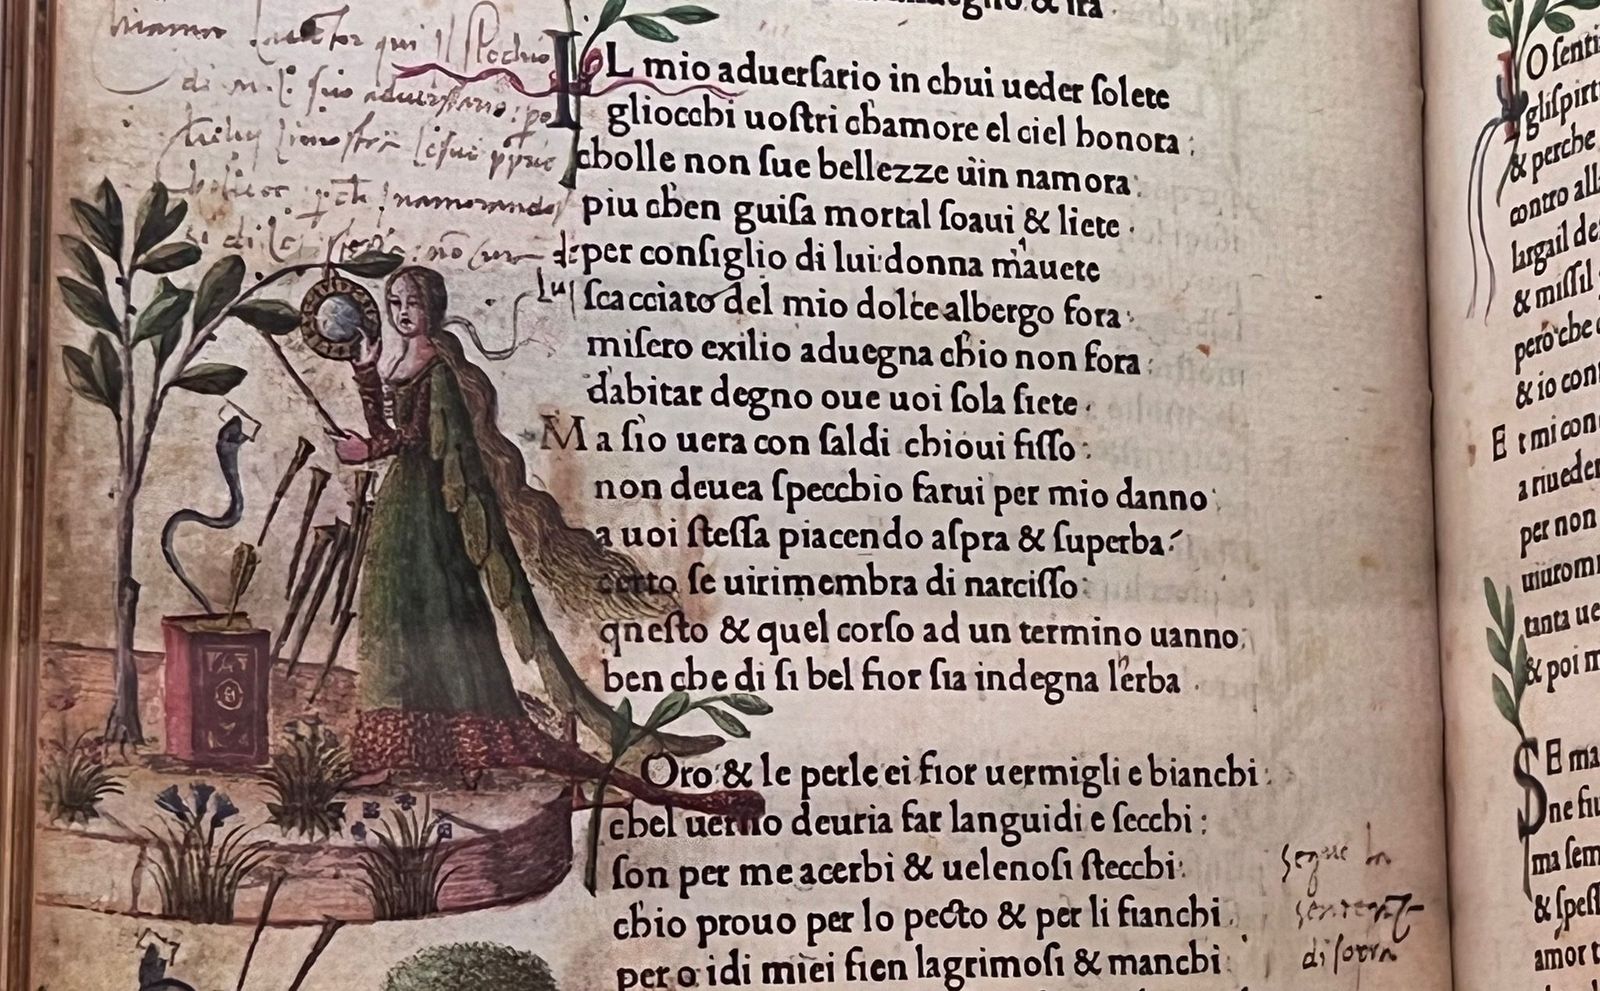 & ira.
IL mio aduerſario in chui ueder ſolete
gliocchi uoſtri chamore el ciel honora:
cholle non ſue bellezze uin namora:
piu chen guiſa mortal ſoaui & liete.
per conſiglio di lui:donna mauete
ſcacciato del mio dolce albergo fora:
miſero exilio aduegna chio non fora:
dabitar degno oue uoi ſola ſiete.
Ma ſio uera con ſaldi chioui fiſſo:
non deuea ſpecchio farui per mio danno:
a uoi ſteſſa piacendo aſpra & ſuperba:
certo ſe uirimembra di narciſſo:
queſto & quel corſo ad un termino uanno:
ben che di ſi bel fior ſia indegna lherba.
Oro & le perle ei fior uermigli e bianchi:
chel uerno deuria far languidi e ſecchi:
ſon per me acerbi & uelenoſi ſtecchi:
chio prouo per lo pecto & per li fianchi.
pero idi miei fien lagrimoſi & manchi
qui il ſpechio
ſuo aduerſario:
Inamorando
Lui
ſegue la
ſententia
di ſopra
gliſpirt
& perche
contro all
largail de
& miſſil
pero che
& io con
Et mi con
a riueder
per non
uiuromi
tanta ue
& poi m
SE ma
ne fiu
ma ſem
& ſpeſſ
amor t